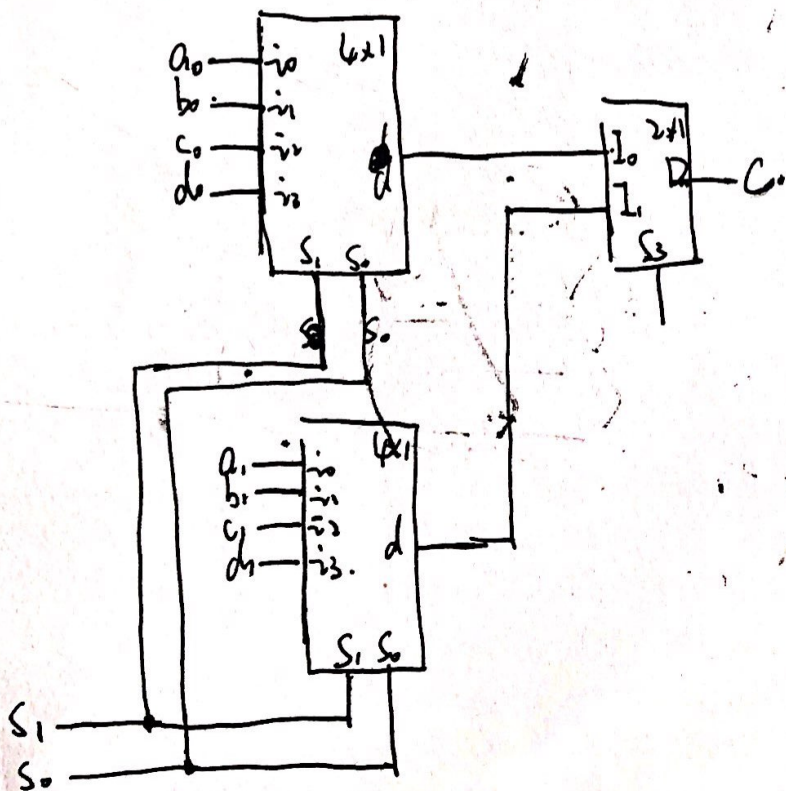 a0 i0 4x1
b0 i1
c0 i2
d0 i3
d
S1 S0
S0
I0 2x1
I1 D C0
S3
a1 i0 4x1
b1 i1
c1 i2
d1 i3.
d
S1 S0
S1
S0